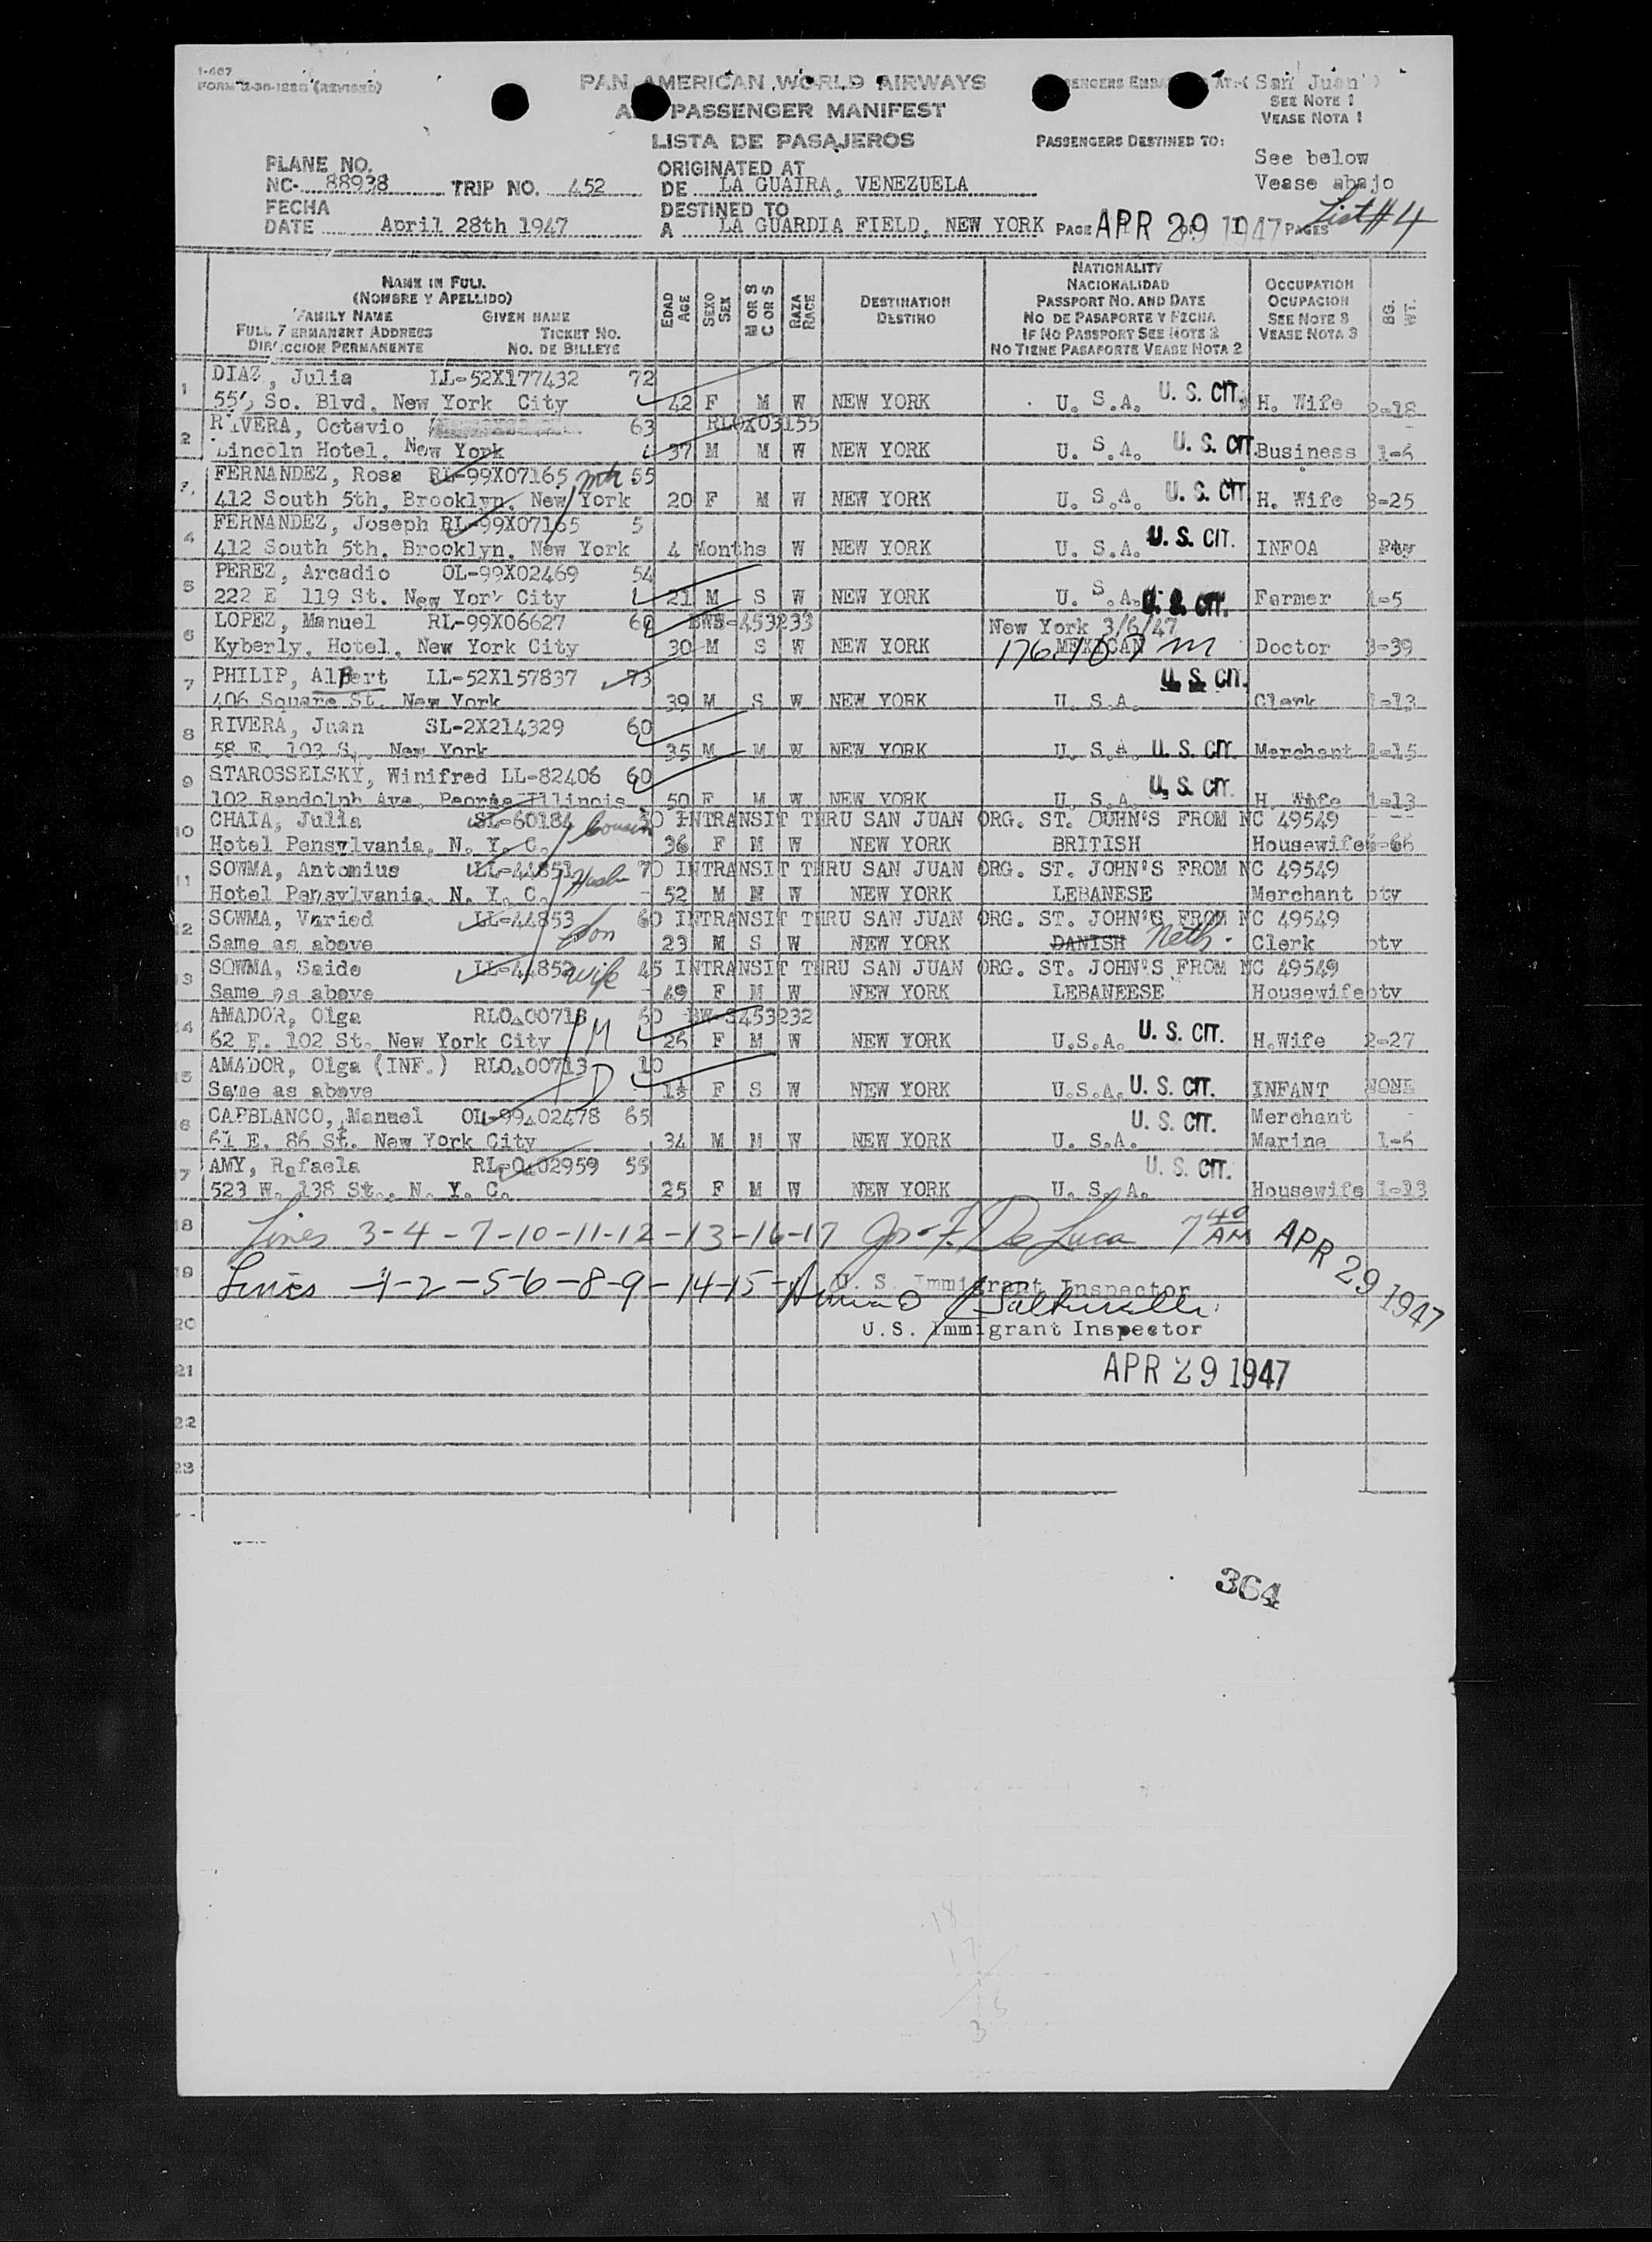 I-467
FORM (REVISED)
PAN AMERICAN WORLD AIRWAYS
PASSENGER MANIFEST
LISTA DE PASAJEROS
San Juan
SEE NOTE 1
VEASE NOTA 1
PASSENGERS DESTINED TO:
See below
Vease abajo
PLANE NO.
NC- 88938 TRIP NO. 452
ORIGINATED AT
DE LA GUAIRA, VENEZUELA
FECHA
DATE April 28th 1947
DESTINED TO
A LA GUARDIA FIELD, NEW YORK PAGE APR 29 1947 PAGES List #4
NAME IN FULL
(NOMBRE Y APELLIDO)
FAMILY NAME GIVEN NAME
FULL PERMANENT ADDRESS TICKET NO.
DIRECCION PERMANENTE NO. DE BILLETE
EDAD AGE
SEXO SEX
M OR S C OR S
RAZA RACE
DESTINATION
DESTINO
NATIONALITY
NACIONALIDAD
PASSPORT NO. AND DATE
NO DE PASAPORTE Y FECHA
IF NO PASSPORT SEE NOTE 2
NO TIENE PASAPORTE VEASE NOTA 2
OCCUPATION
OCUPACION
SEE NOTE 3
VEASE NOTA 3
BG. WT.
1 DIAZ, Julia LL-52X177432 72
So. Blvd. New York City 42 F M W NEW YORK U. S.A. U. S. CIT. H. Wife 2-18
2 RIVERA, Octavio 63 RLOX03155
Lincoln Hotel, New York 37 M M W NEW YORK U. S.A. U. S. CIT. Business 1-6
3 FERNANDEZ, Rosa RL-99X07165 mth 55
412 South 5th, Brooklyn, New York 20 F M W NEW YORK U. S.A. U. S. CIT. H. Wife 3-25
4 FERNANDEZ, Joseph RL-99X07165 5
412 South 5th, Brooklyn, New York 4 Months W NEW YORK U. S.A. U. S. CIT. INFOA Pty
5 PEREZ, Arcadio OL-99X02469 54
222 E 119 St. New York City 21 M S W NEW YORK U. S.A. U. S. CIT. Farmer 1-5
6 LOPEZ, Manuel RL-99X06627 -453233 New York 3/6/47
Kyberly, Hotel, New York City 30 M S W NEW YORK MEXICAN Doctor 3-39
7 PHILIP, Albert LL-52X157837 73 U. S. CIT.
406 Square St. New York 39 M S W NEW YORK U. S.A. Clerk 1-13
8 RIVERA, Juan SL-2X214329 60
58 E. 103 New York 35 M M W NEW YORK U. S.A. U. S. CIT. Merchant 1-15
9 STAROSSELSKY, Winifred LL-82406 60 U. S. CIT.
102 Randolph Ave. Peoria Illinois 50 F M W NEW YORK U. S.A. H. Wife 1-13
10 CHAIA, Julia SL-60184 Cousin INTRANSIT THRU SAN JUAN ORG. ST. JOHN'S FROM NC 49549
Hotel Pensylvania, N. Y. C. 36 F M W NEW YORK BRITISH Housewife 6-66
11 SOWMA, Antonius LL-44851 Husb 70 INTRANSIT THRU SAN JUAN ORG. ST. JOHN'S FROM NC 49549
Hotel Pensylvania, N. Y. C. 52 M M W NEW YORK LEBANESE Merchant pty
12 SOWMA, Varied LL-44853 Son 60 INTRANSIT THRU SAN JUAN ORG. ST. JOHN'S FROM NC 49549
Same as above 23 M S W NEW YORK DANISH Neth. Clerk pty
13 SOWMA, Saide LL-44852 wife 45 INTRANSIT THRU SAN JUAN ORG. ST. JOHN'S FROM NC 49549
Same as above 49 F M W NEW YORK LEBANEESE Housewife pty
14 AMADOR, Olga RLO 00713 60 BW-S453232
62 E. 102 St. New York City M 26 F M W NEW YORK U.S.A. U. S. CIT. H.Wife 2-27
15 AMADOR, Olga (INF.) RLO 00713 10
Same as above D 1½ F S W NEW YORK U.S.A. U. S. CIT. INFANT NONE
16 CAPBLANCO, Manuel OL-99 02478 65 U. S. CIT. Merchant
61 E. 86 St. New York City 34 M M W NEW YORK U. S.A. Marine 1-6
17 AMY, Rafaela RL-0 02959 55 U. S. CIT.
523 W. 138 St., N. Y. C. 25 F M W NEW YORK U. S. A. Housewife 1-13
18 Lines 3-4-7-10-11-12-13-16-17 Jos. F. De Luca 7 40 AM APR 29 1947
19 Lines 1-2-5-6-8-9-14-15- U. S. Immigrant Inspector
20 U.S. Immigrant Inspector
21 APR 29 1947
22
23
364
18
17
3